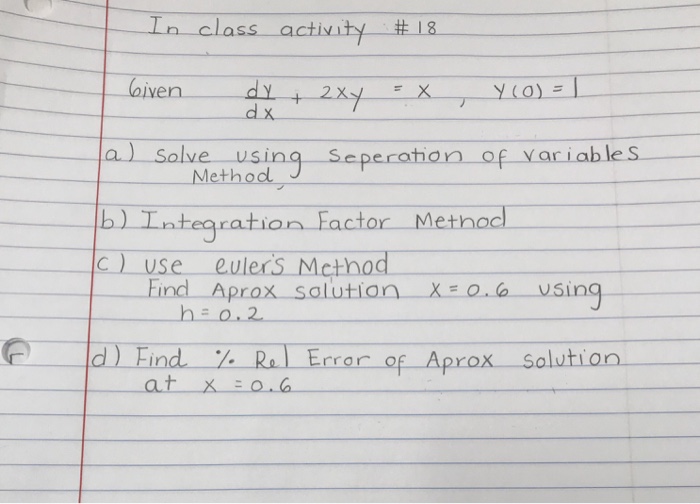 In class activity #18
Given dy/dx + 2xy = x, y(0) = 1
a) Solve using Seperation of variables
Method
b) Integration Factor Method
c) use euler's Method
Find Aprox solution x = 0.6 using
h = 0.2
d) Find % Rel Error of Aprox solution
at x = 0.6